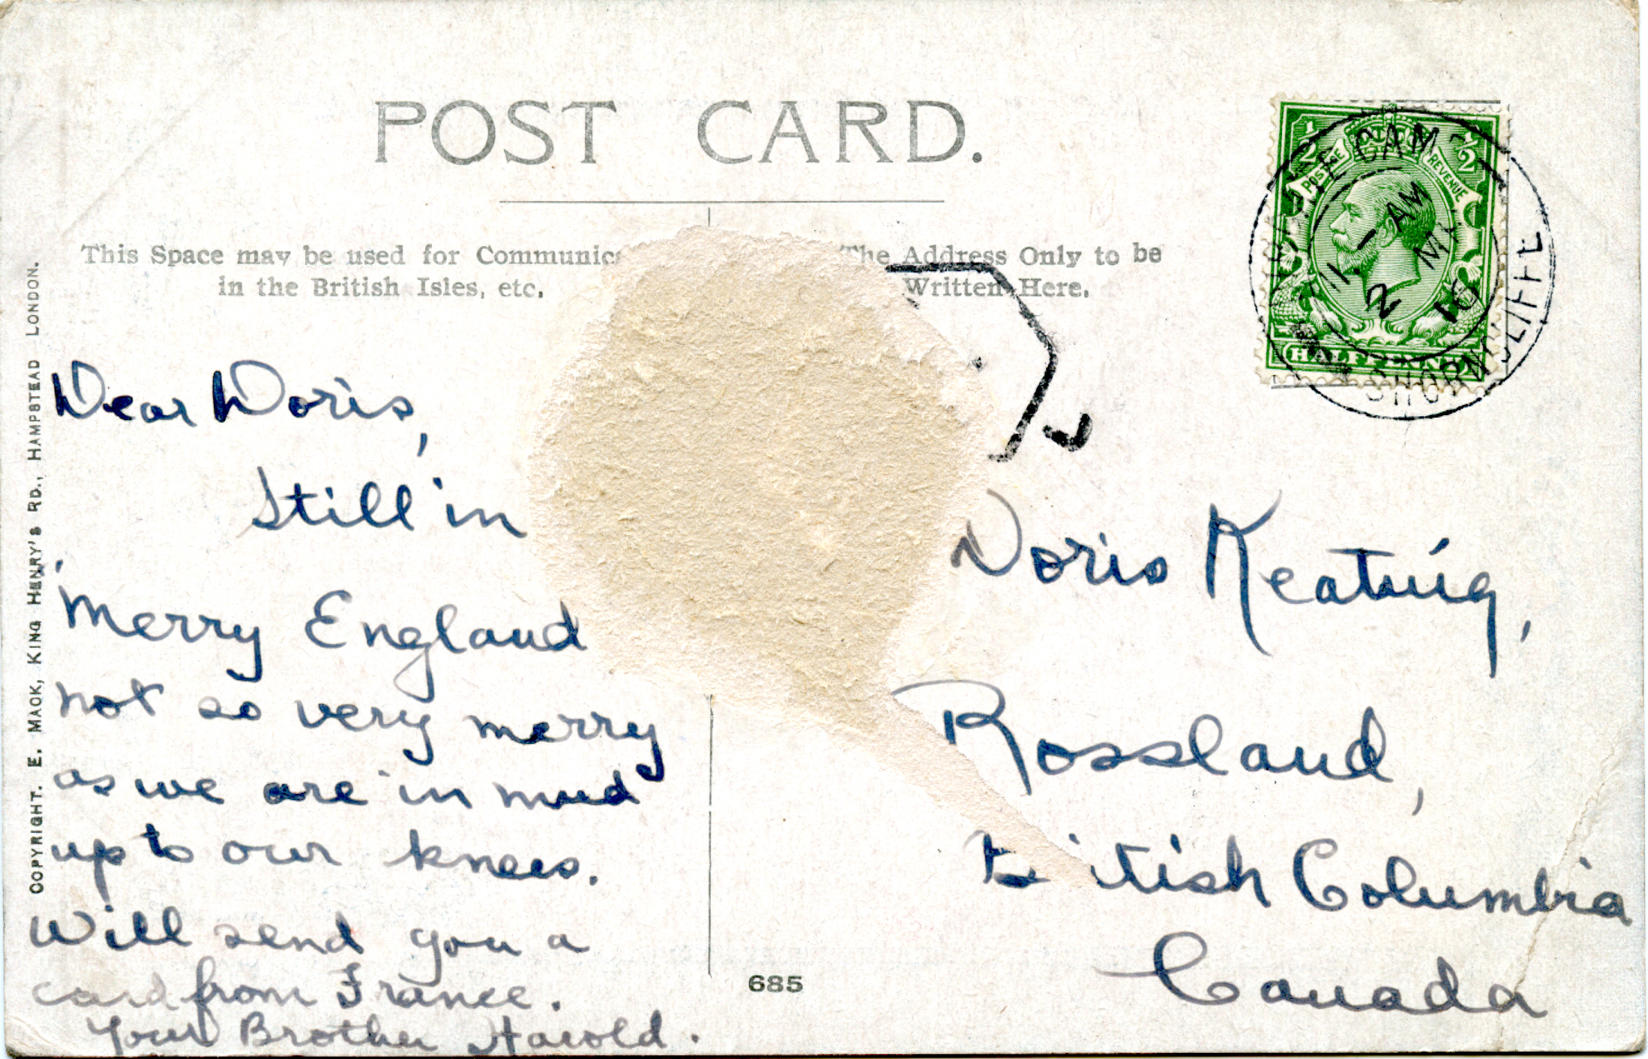 POST CARD.
This Space may be used for Communic
in the British Isles, etc.
The Address Only to be
Written Here.
COPYRIGHT. E. MACK, KING HENRY'S RD., HAMPSTEAD LONDON.
1/2 1/2
POSTAGE REVENUE
HALFPENNY
CAM
SHORNCLIFFE
11 - AM
2 MY
16
Dear Doris,
Still in
"Merry England
not so very merry
as we are in mud
up to our knees.
Will send you a
card from France.
Your Brother Harold.
Doris Keating,
Rossland,
B itish Columbia
Canada
685